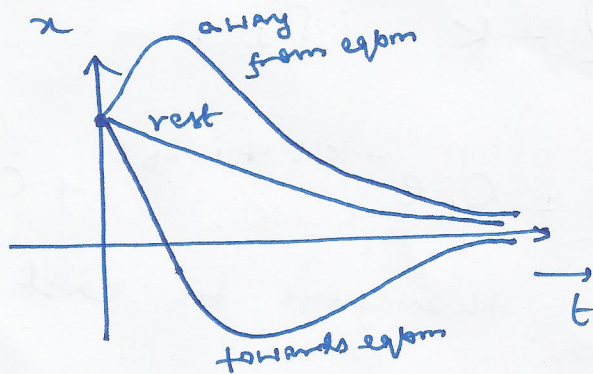 x
away
from eqbm
rest
t
towards eqbm